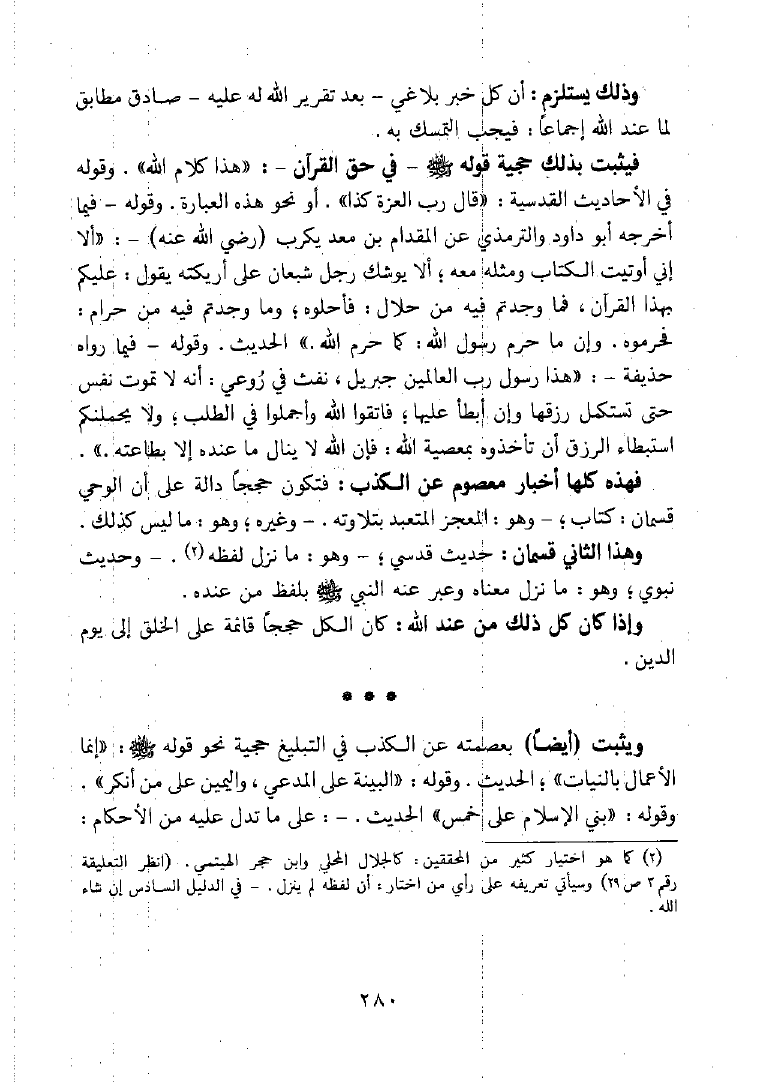 وذلك يستلزم : أن كل خبر بلاغي – بعد تقرير الله له عليه – صادق مطابق
لما عند الله إجماعاً : فيجب التمسك به .
فيثبت بذلك حجية قوله ﷺ – في حق القرآن – : «هذا كلام الله» . وقوله
في الأحاديث القدسية : «قال رب العزة كذا» . أو نحو هذه العبارة . وقوله – فيما
أخرجه أبو داود والترمذي عن المقدام بن معد يكرب (رضي الله عنه) – : «ألا
إني أوتيت الكتاب ومثله معه ؛ ألا يوشك رجل شبعان على أريكته يقول : عليكم
بهذا القرآن ، فما وجدتم فيه من حلال : فأحلوه ؛ وما وجدتم فيه من حرام :
فحرموه . وإن ما حرم رسول الله : كما حرم الله .» الحديث . وقوله – فيما رواه
حذيفة – : «هذا رسول رب العالمين جبريل ، نفث في رُوعي : أنه لا تموت نفس
حتى تستكمل رزقها وإن أبطأ عليها ؛ فاتقوا الله وأجملوا في الطلب ؛ ولا يحملنكم
استبطاء الرزق أن تأخذوه بمعصية الله : فإن الله لا ينال ما عنده إلا بطاعته .» .
فهذه كلها أخبار معصوم عن الكذب : فتكون حججاً دالة على أن الوحي
قسمان : كتاب ؛ – وهو : المعجز المتعبد بتلاوته . – وغيره ؛ وهو : ما ليس كذلك .
وهذا الثاني قسمان : حديث قدسي ؛ – وهو : ما نزل لفظه (٢) . – وحديث
نبوي ؛ وهو : ما نزل معناه وعبر عنه النبي ﷺ بلفظ من عنده .
وإذا كان كل ذلك من عند الله : كان الكل حججاً قائمة على الخلق إلى يوم
الدين .
* * *
ويثبت (أيضاً) بعصمته عن الكذب في التبليغ حجية نحو قوله ﷺ : «إنما
الأعمال بالنيات» ؛ الحديث . وقوله : «البينة على المدعي ، واليمين على من أنكر» .
وقوله : «بني الإسلام على خمس» الحديث . – : على ما تدل عليه من الأحكام :
(٢) كما هو اختيار كثير من المحققين : كالجلال المحلي وابن حجر الهيتمي . (انظر التعليقة
رقم ٣ ص ٢٩) وسيأتي تعريفه على رأي من اختار : أن لفظه لم ينزل . – في الدليل السادس إن شاء
الله .
٢٨٠